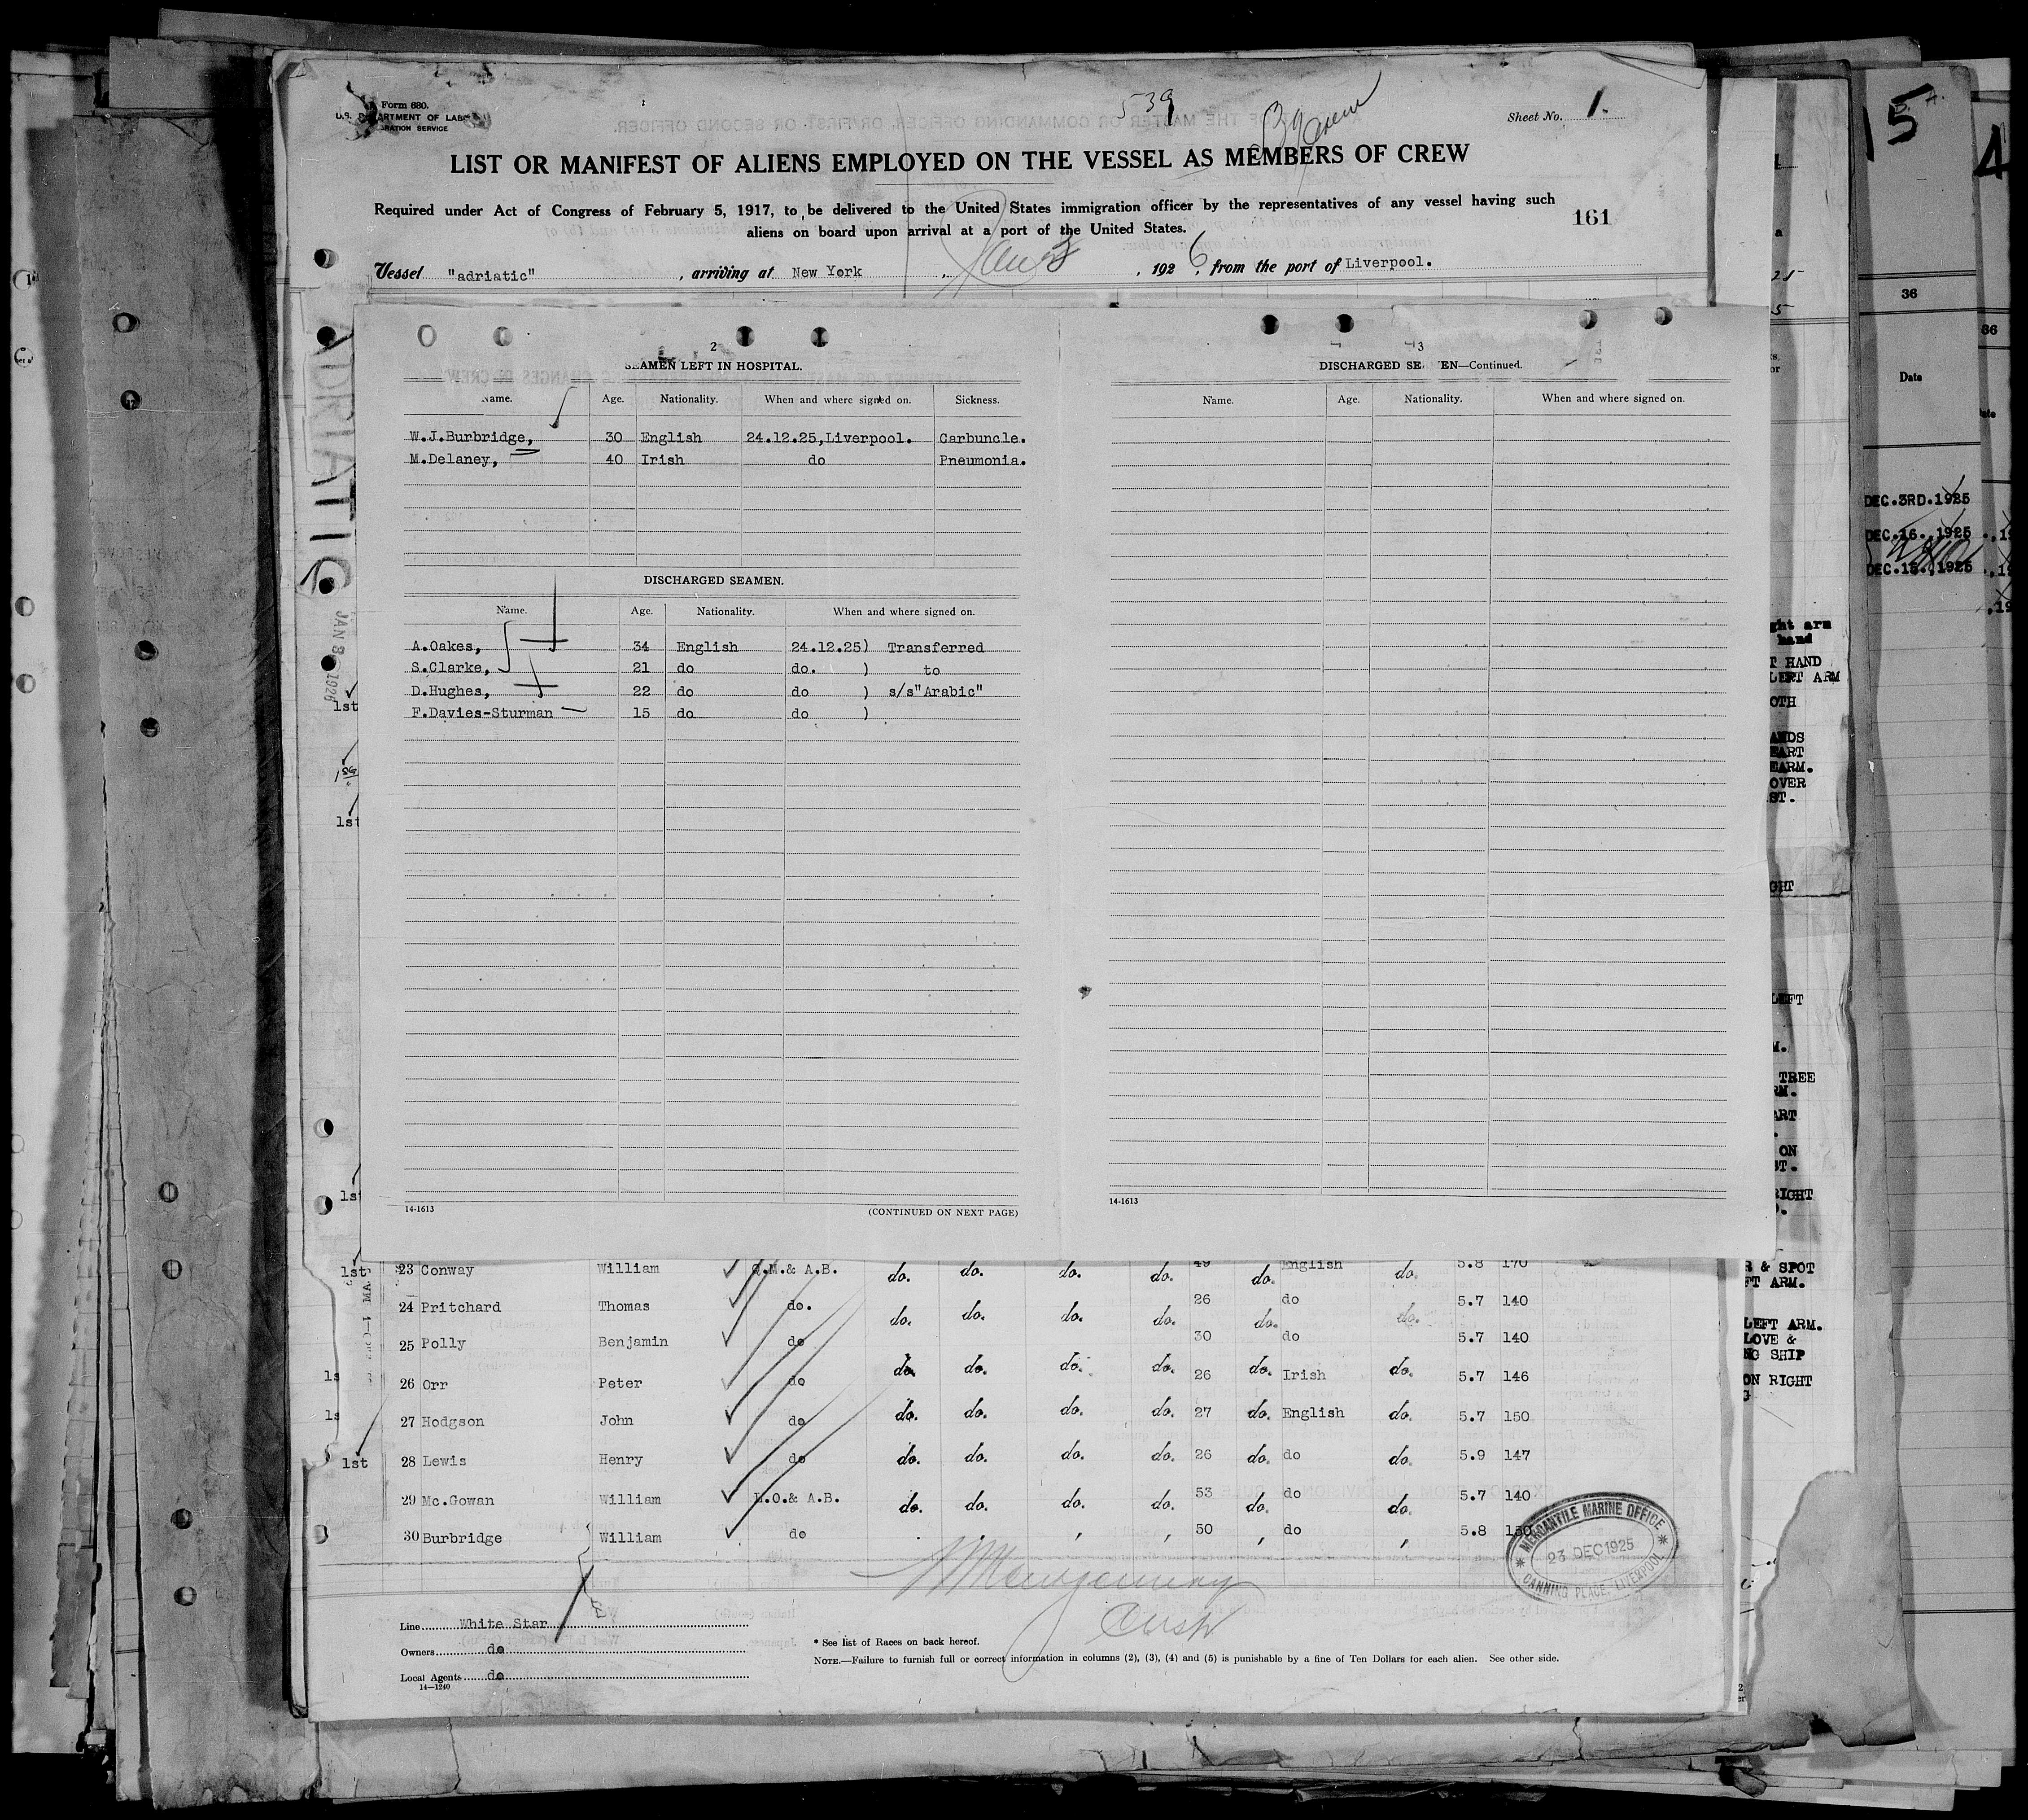 Form 680.
U.S. DEPARTMENT OF LABOR
539
Sheet No. 1.
LIST OR MANIFEST OF ALIENS EMPLOYED ON THE VESSEL AS MEMBERS OF CREW
Required under Act of Congress of February 5, 1917, to be delivered to the United States immigration officer by the representatives of any vessel having such
aliens on board upon arrival at a port of the United States.
161
Vessel "adriatic", arriving at New York, Jan 3, 1926, from the port of Liverpool.
ADRIATIC
JAN 8 1926
2
SEAMEN LEFT IN HOSPITAL.
Name. Age. Nationality. When and where signed on. Sickness.
W.J.Burbridge, 30 English 24.12.25,Liverpool. Carbuncle.
M.Delaney, 40 Irish do Pneumonia.
DISCHARGED SEAMEN.
Name. Age. Nationality. When and where signed on.
A.Oakes, 34 English 24.12.25) Transferred
S.Clarke, 21 do do. ) to
D.Hughes, 22 do do ) s/s"Arabic"
F.Davies-Sturman 15 do do )
14-1613
(CONTINUED ON NEXT PAGE)
3
DISCHARGED SE EN—Continued.
Name. Age. Nationality. When and where signed on.
14-1613
1st
1st
1st
1st
1st 23 Conway William Q.M.& A.B. do. do. do. do. 49 do. English do. 5.8 170
24 Pritchard Thomas do. do. do. do. do. 26 do. do do. 5.7 140
25 Polly Benjamin do 30 do 5.7 140
26 Orr Peter do do. do. do. do. 26 do. Irish do. 5.7 146
27 Hodgson John do do. do. do. do. 27 do. English do. 5.7 150
1st 28 Lewis Henry do do. do. do. do. 26 do. do do. 5.9 147
29 Mc.Gowan William L.O.& A.B. do. do. do. do. 53 do. do do. 5.7 140
30 Burbridge William do 50 do 5.8 150
MERCANTILE MARINE OFFICE
23 DEC 1925
CANNING PLACE, LIVERPOOL
Line White Star
Owners do
Local Agents do
14—1240
* See list of Races on back hereof.
NOTE.—Failure to furnish full or correct information in columns (2), (3), (4) and (5) is punishable by a fine of Ten Dollars for each alien. See other side.
5
4
36
36
Date
DEC.3RD.1925
DEC.16.,1925
DEC.15.,1925
ght arm
hand
T HAND
LEFT ARM
OTH
ANDS
EART
EARM.
OVER
ST.
GHT
LEFT
M.
TREE
RM.
ART
ON
ST.
RIGHT
R & SPOT
FT ARM.
LEFT ARM.
LOVE &
NG SHIP
ON RIGHT